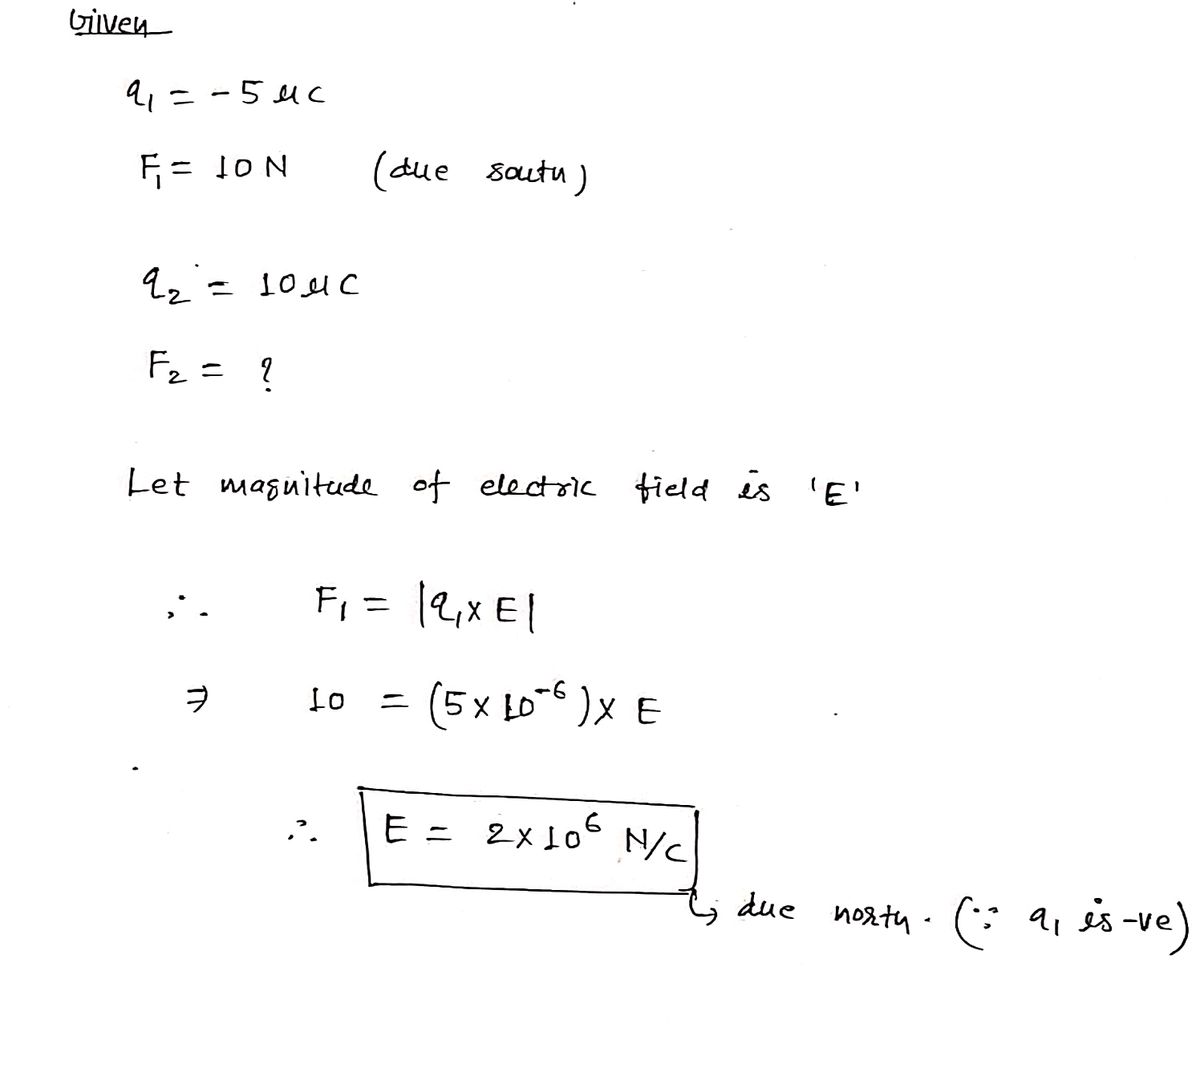 Given
q₁ = -5 μC
F₁ = 10 N (due south)
q₂ = 10 μC
F₂ = ?
Let magnitude of electric field is 'E'
∴ F₁ = |q₁ x E|
⇒ 10 = (5 x 10⁻⁶) x E
∴ E = 2 x 10⁶ N/C
↳ due north. (∵ q₁ is -ve)